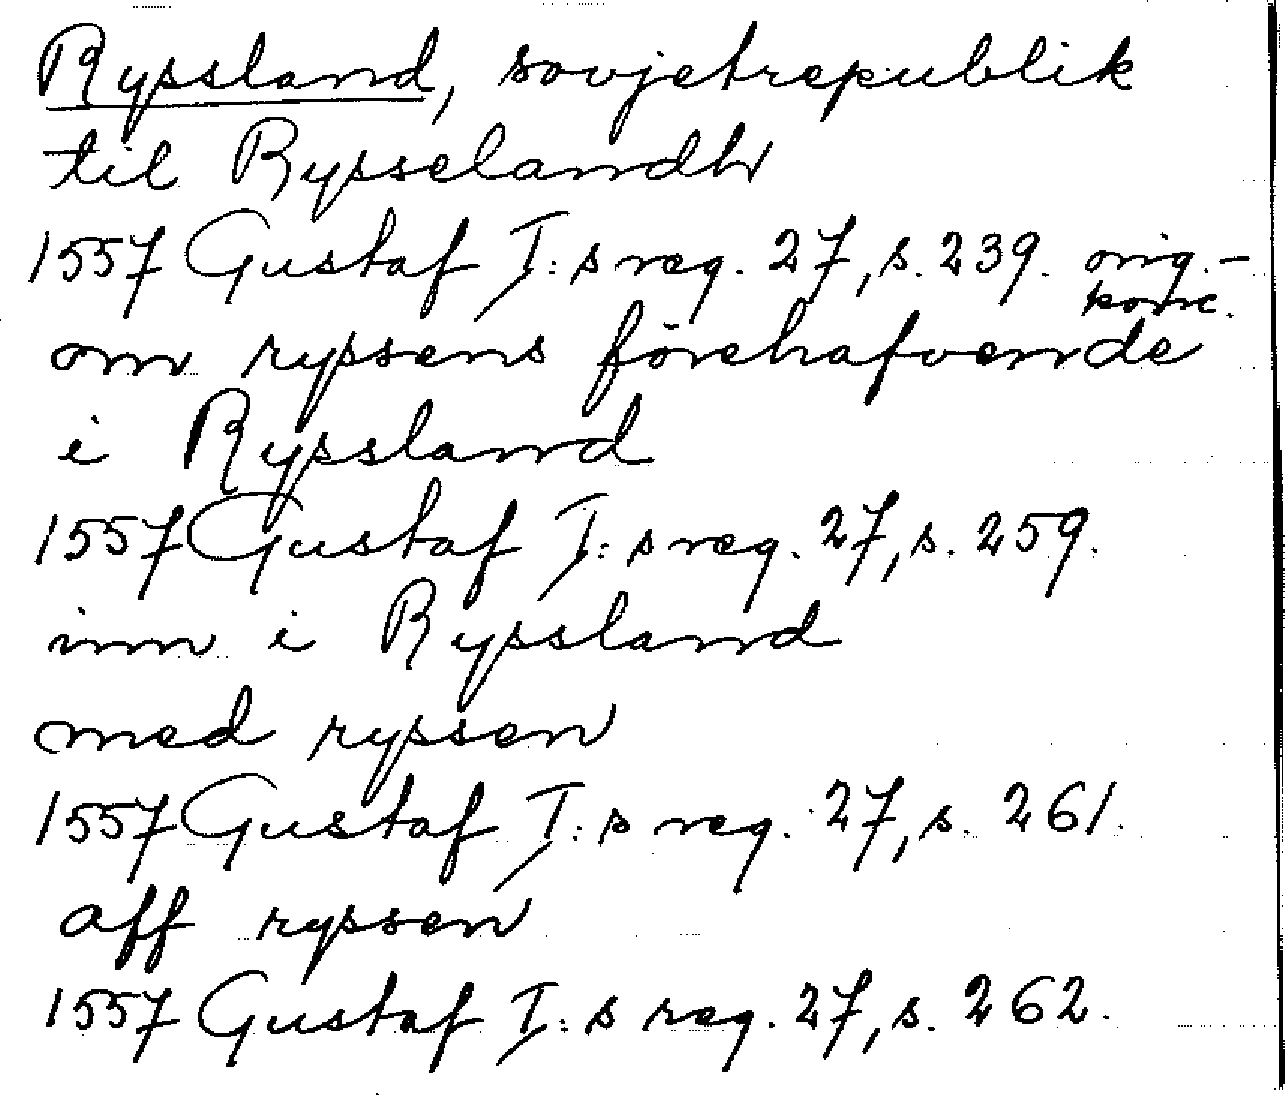 Ryssland, sovjetrepublik
til Rysselandh
1557 Gustaf I:s reg. 27, s. 239. orig.-
konc.
om ryssens förehafvende
i Ryssland
1557 Gustaf I:s reg. 27, s. 259.
inn i Ryssland
med ryssen
1557 Gustaf I:s reg. 27, s. 261.
aff ryssen
1557 Gustaf I:s reg. 27, s. 262.